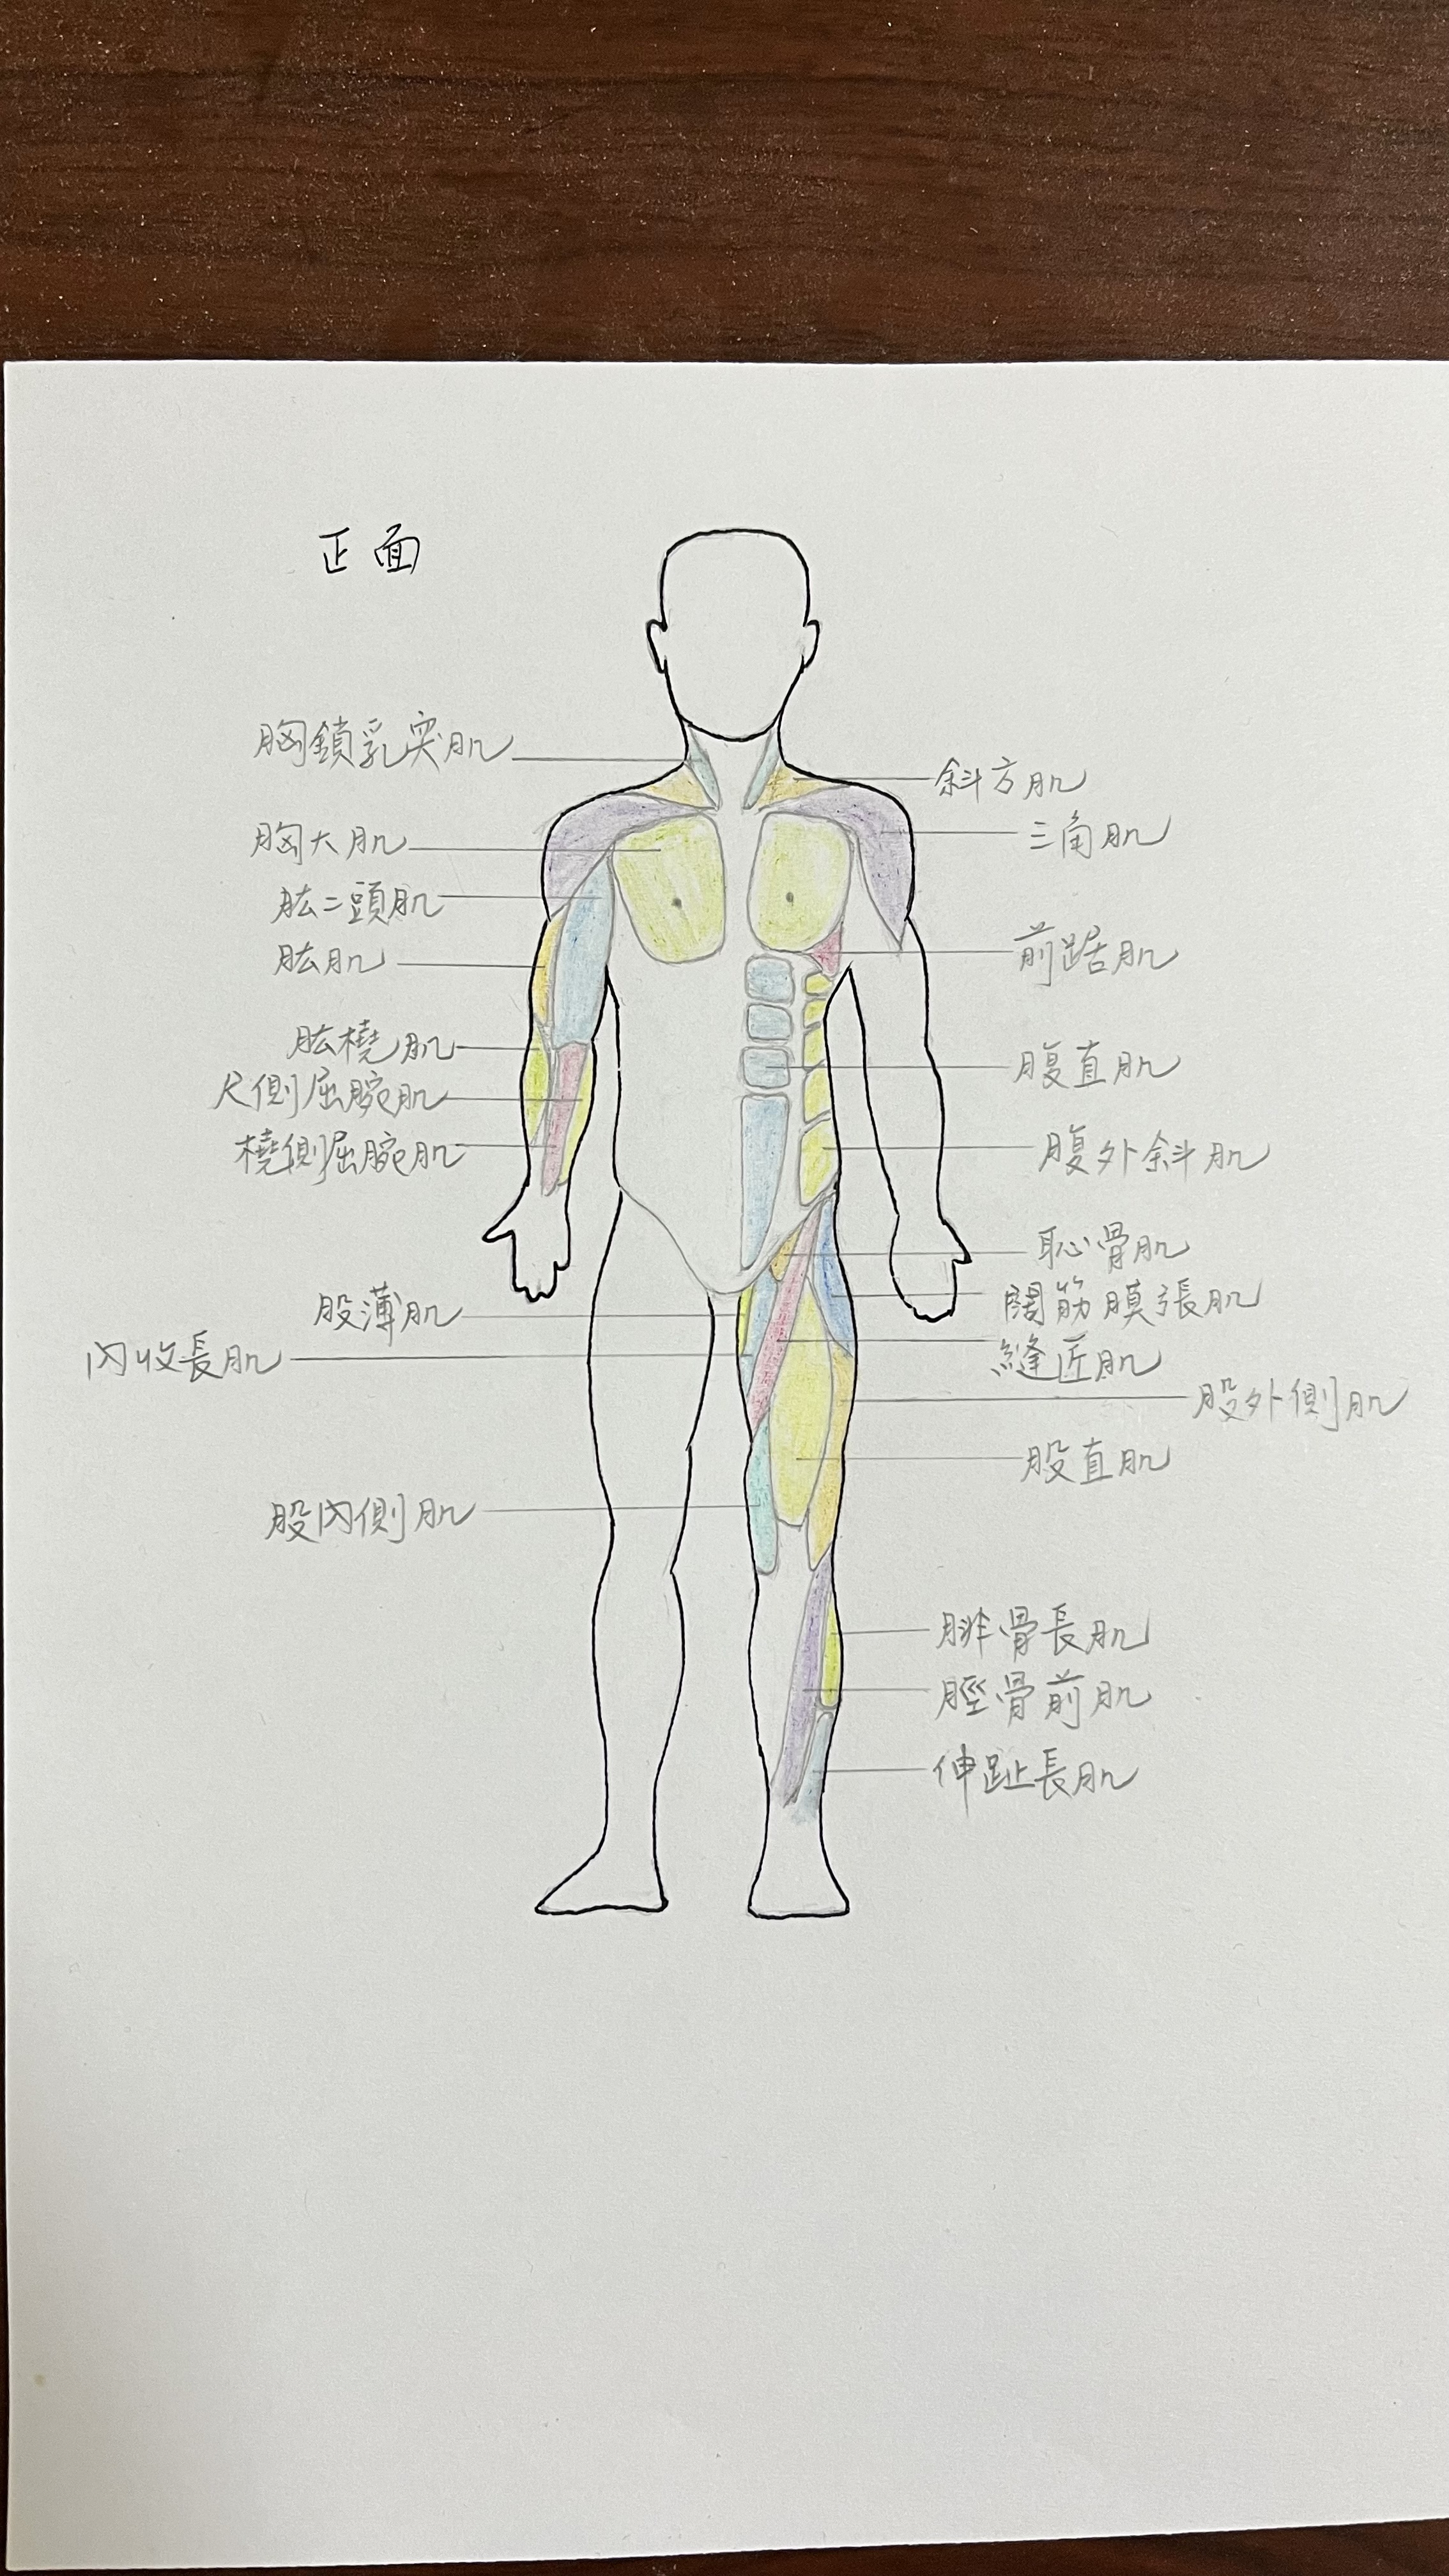 正面
胸鎖乳突肌
斜方肌
胸大肌
三角肌
肱二頭肌
肱肌
前踞肌
肱橈肌
腹直肌
尺側屈腕肌
橈側屈腕肌
腹外斜肌
恥骨肌
股薄肌
闊筋膜張肌
內收長肌
縫匠肌
股外側肌
股直肌
股內側肌
腓骨長肌
脛骨前肌
伸趾長肌